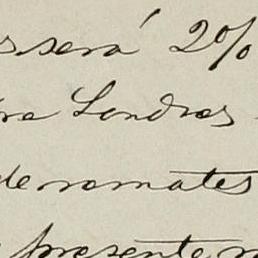 será 2%
Londres
de remates
presente